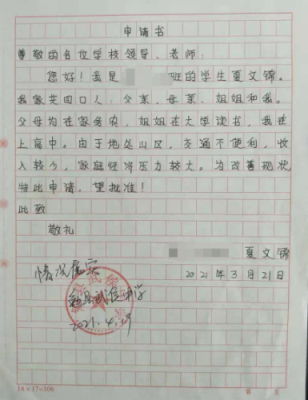 申请书
尊敬的各位学校领导、老师:
您好!我是 班的学生夏文锦。
我家共四口人:父亲、母亲、姐姐和我。
父母均在家务农,姐姐在大学读书,我在
上高中。由于地处山区,交通不便利,收
入较少,家庭经济压力较大。为改善现状
特此申请。望批准!
此致
敬礼
夏文锦
2021年3月21日
情况属实
中学
2021.4.29